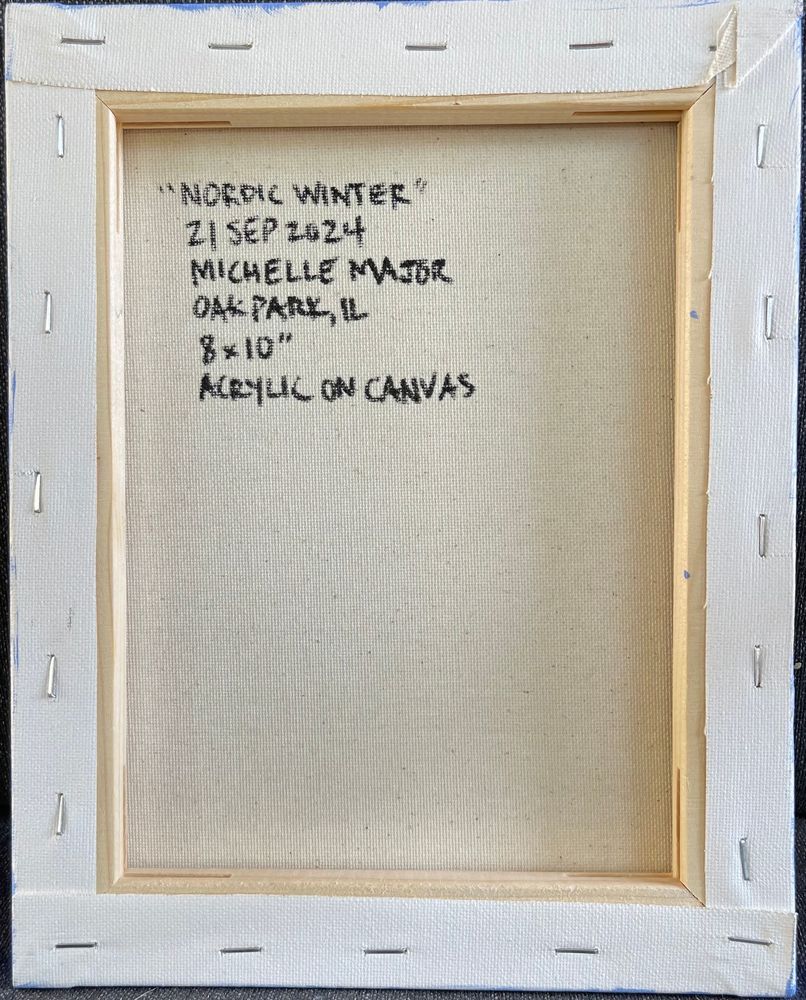 "NORDIC WINTER"
21 SEP 2024
MICHELLE MAJOR
OAK PARK, IL
8x10"
ACRYLIC ON CANVAS